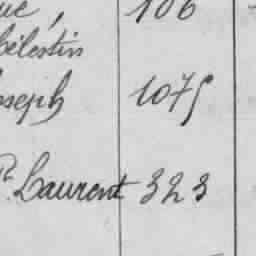 106
Célestin
Joseph 1075
Laurent 323